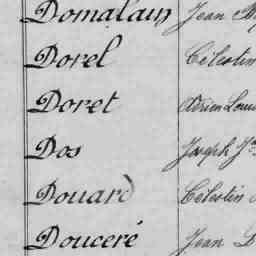 Domalain Jean
Dorel Célestin
Doret Adrien Louis
Dos Joseph
Douard Célestin
Douceré Jean